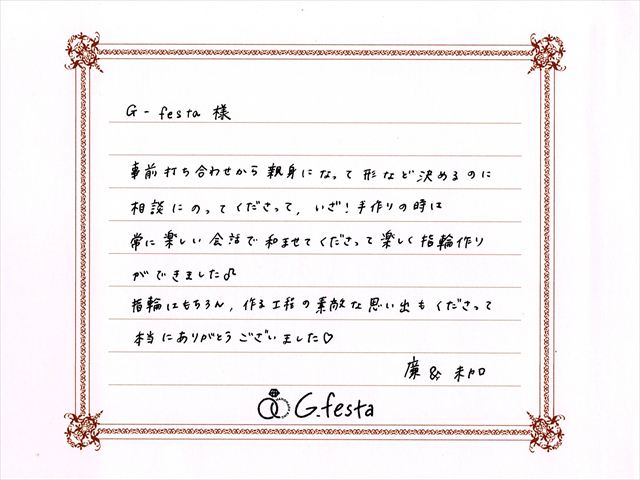 G-festa 様
事前打ち合わせから親身になって形など決めるのに
相談にのってくださって、いざ!手作りの時は
常に楽しい会話で和ませてくださって楽しく指輪作り
ができました♫
指輪はもちろん、作る工程の素敵な思い出もくださって
本当にありがとうございました♡
廣 & 未加
G.festa